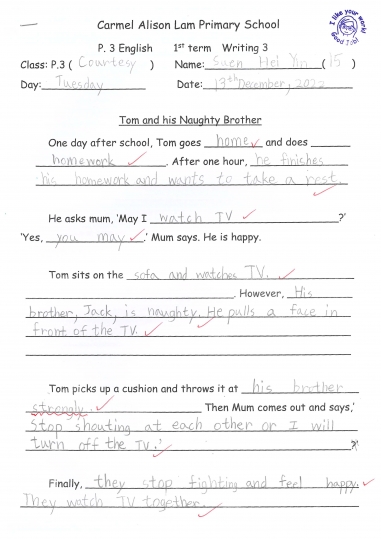 I like your work!
Good Job!
Carmel Alison Lam Primary School
P. 3 English 1st term Writing 3
Class: P.3 ( Courtesy ) Name: Suen Hei Yin ( 15 )
Day: Tuesday Date: 13th December, 2022
Tom and his Naughty Brother
One day after school, Tom goes home and does
homework . After one hour, he finiches
his homework and wants to take a rest.
He asks mum, 'May I watch TV ?'
'Yes, you may .' Mum says. He is happy.
Tom sits on the sofa and watches TV.
. However, His
brother, Jack, is naughty. He pulls a face in
front of the TV.
Tom picks up a cushion and throws it at his brother
strongly. Then Mum comes out and says,'
Stop shouting at each other or I will
turn off the TV.' ?'
Finally, they stop fighting and feel happy.
They watch TV together.